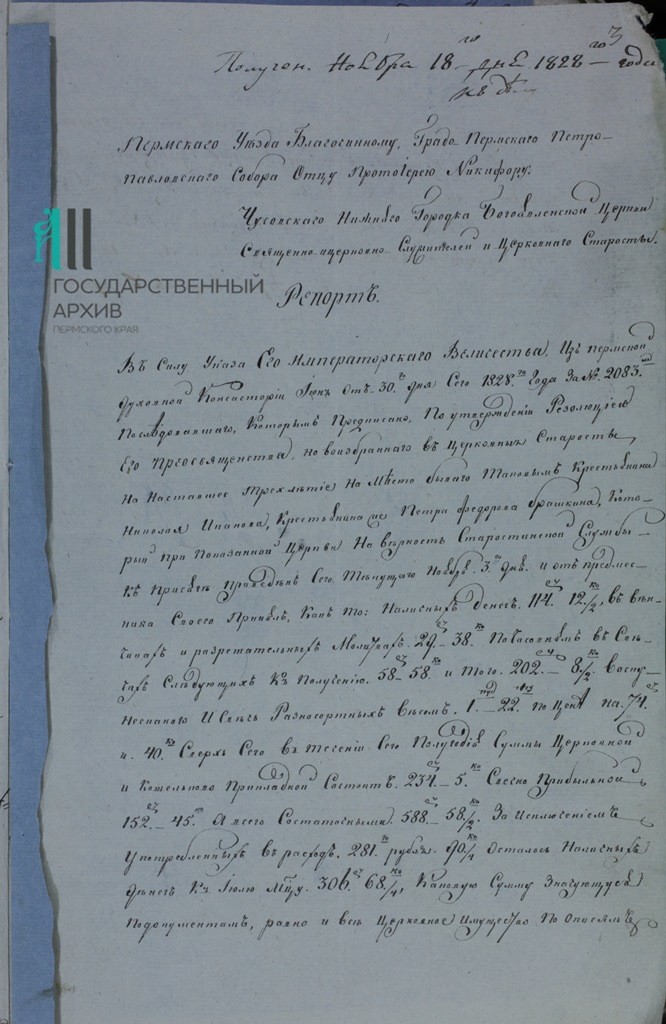 Получен. Ноября 18го дня 1828го года
3
Пермскаго Уѣзда Благочинному, Градо Пермскаго Петро-
павловскаго Собора Отцу Протоіерею Никифору.
Чусовскаго Нижняго Городка Богоявленской Церкви
Священно-церковно-Служителей и Церковнаго Старосты.
ГОСУДАРСТВЕННЫЙ
АРХИВ
ПЕРМСКОГО КРАЯ
Репортъ.
Въ Силу Указа Его Императорскаго Величества, Изъ Пермской
Духовной Консисторіи Отъ 30. дня Сего 1828. Года За №. 2083.
Послѣдовавшаго, Которымъ Предписано, По утвержденіи Резолюціею
Его Преосвященства, Новоизбраннаго въ Церковныя Старосты
На Наставшее Трехлѣтіе На Мѣсто бывшаго Крестьянина
Николая Иванова, Крестьянина же Петра Федорова, Кото-
рый при Показанной Церкви На вѣрность Старостинской Службы
Къ Присягѣ Приведенъ Сего Текущаго Ноября 3. дня. и отъ предмѣс-
ника Своего Принялъ, Какъ то: Наличныхъ Денегъ. 114. 12½ въ вѣн-
чикахъ и разрешательныхъ Молитвахъ. 38. въ Свѣ-
чахъ Слѣдующихъ Къ Полученію. 58 58. и того. 202. 8½. Воску
И Свѣчь Разносортныхъ вѣсомъ. 1. 22. по Цѣнѣ на. 74.
и. 40. Сверхъ Сего въ теченіи Сего Полугодія Суммы Церковной
и Кошельково Прикладной Состоитъ. 234. 5. Свечно Прибыльной
152. 45. А всего Состаточными. 588. 58½. За Исключеніемъ
Употребленныхъ въ расходъ. 281. рубль. 90 Осталось Наличныхъ
Денегъ Къ Іюлю Мцу. 306. 68 Каковую Сумму
По документамъ, равно и всѣ Церковное Имущество По Описямъ